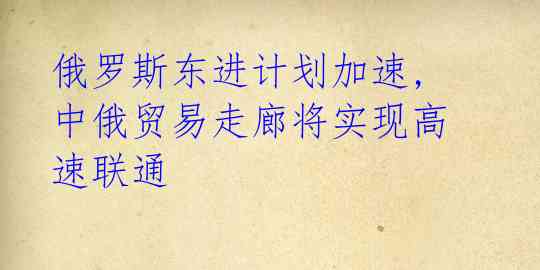 俄罗斯东进计划加速，
中俄贸易走廊将实现高
速联通